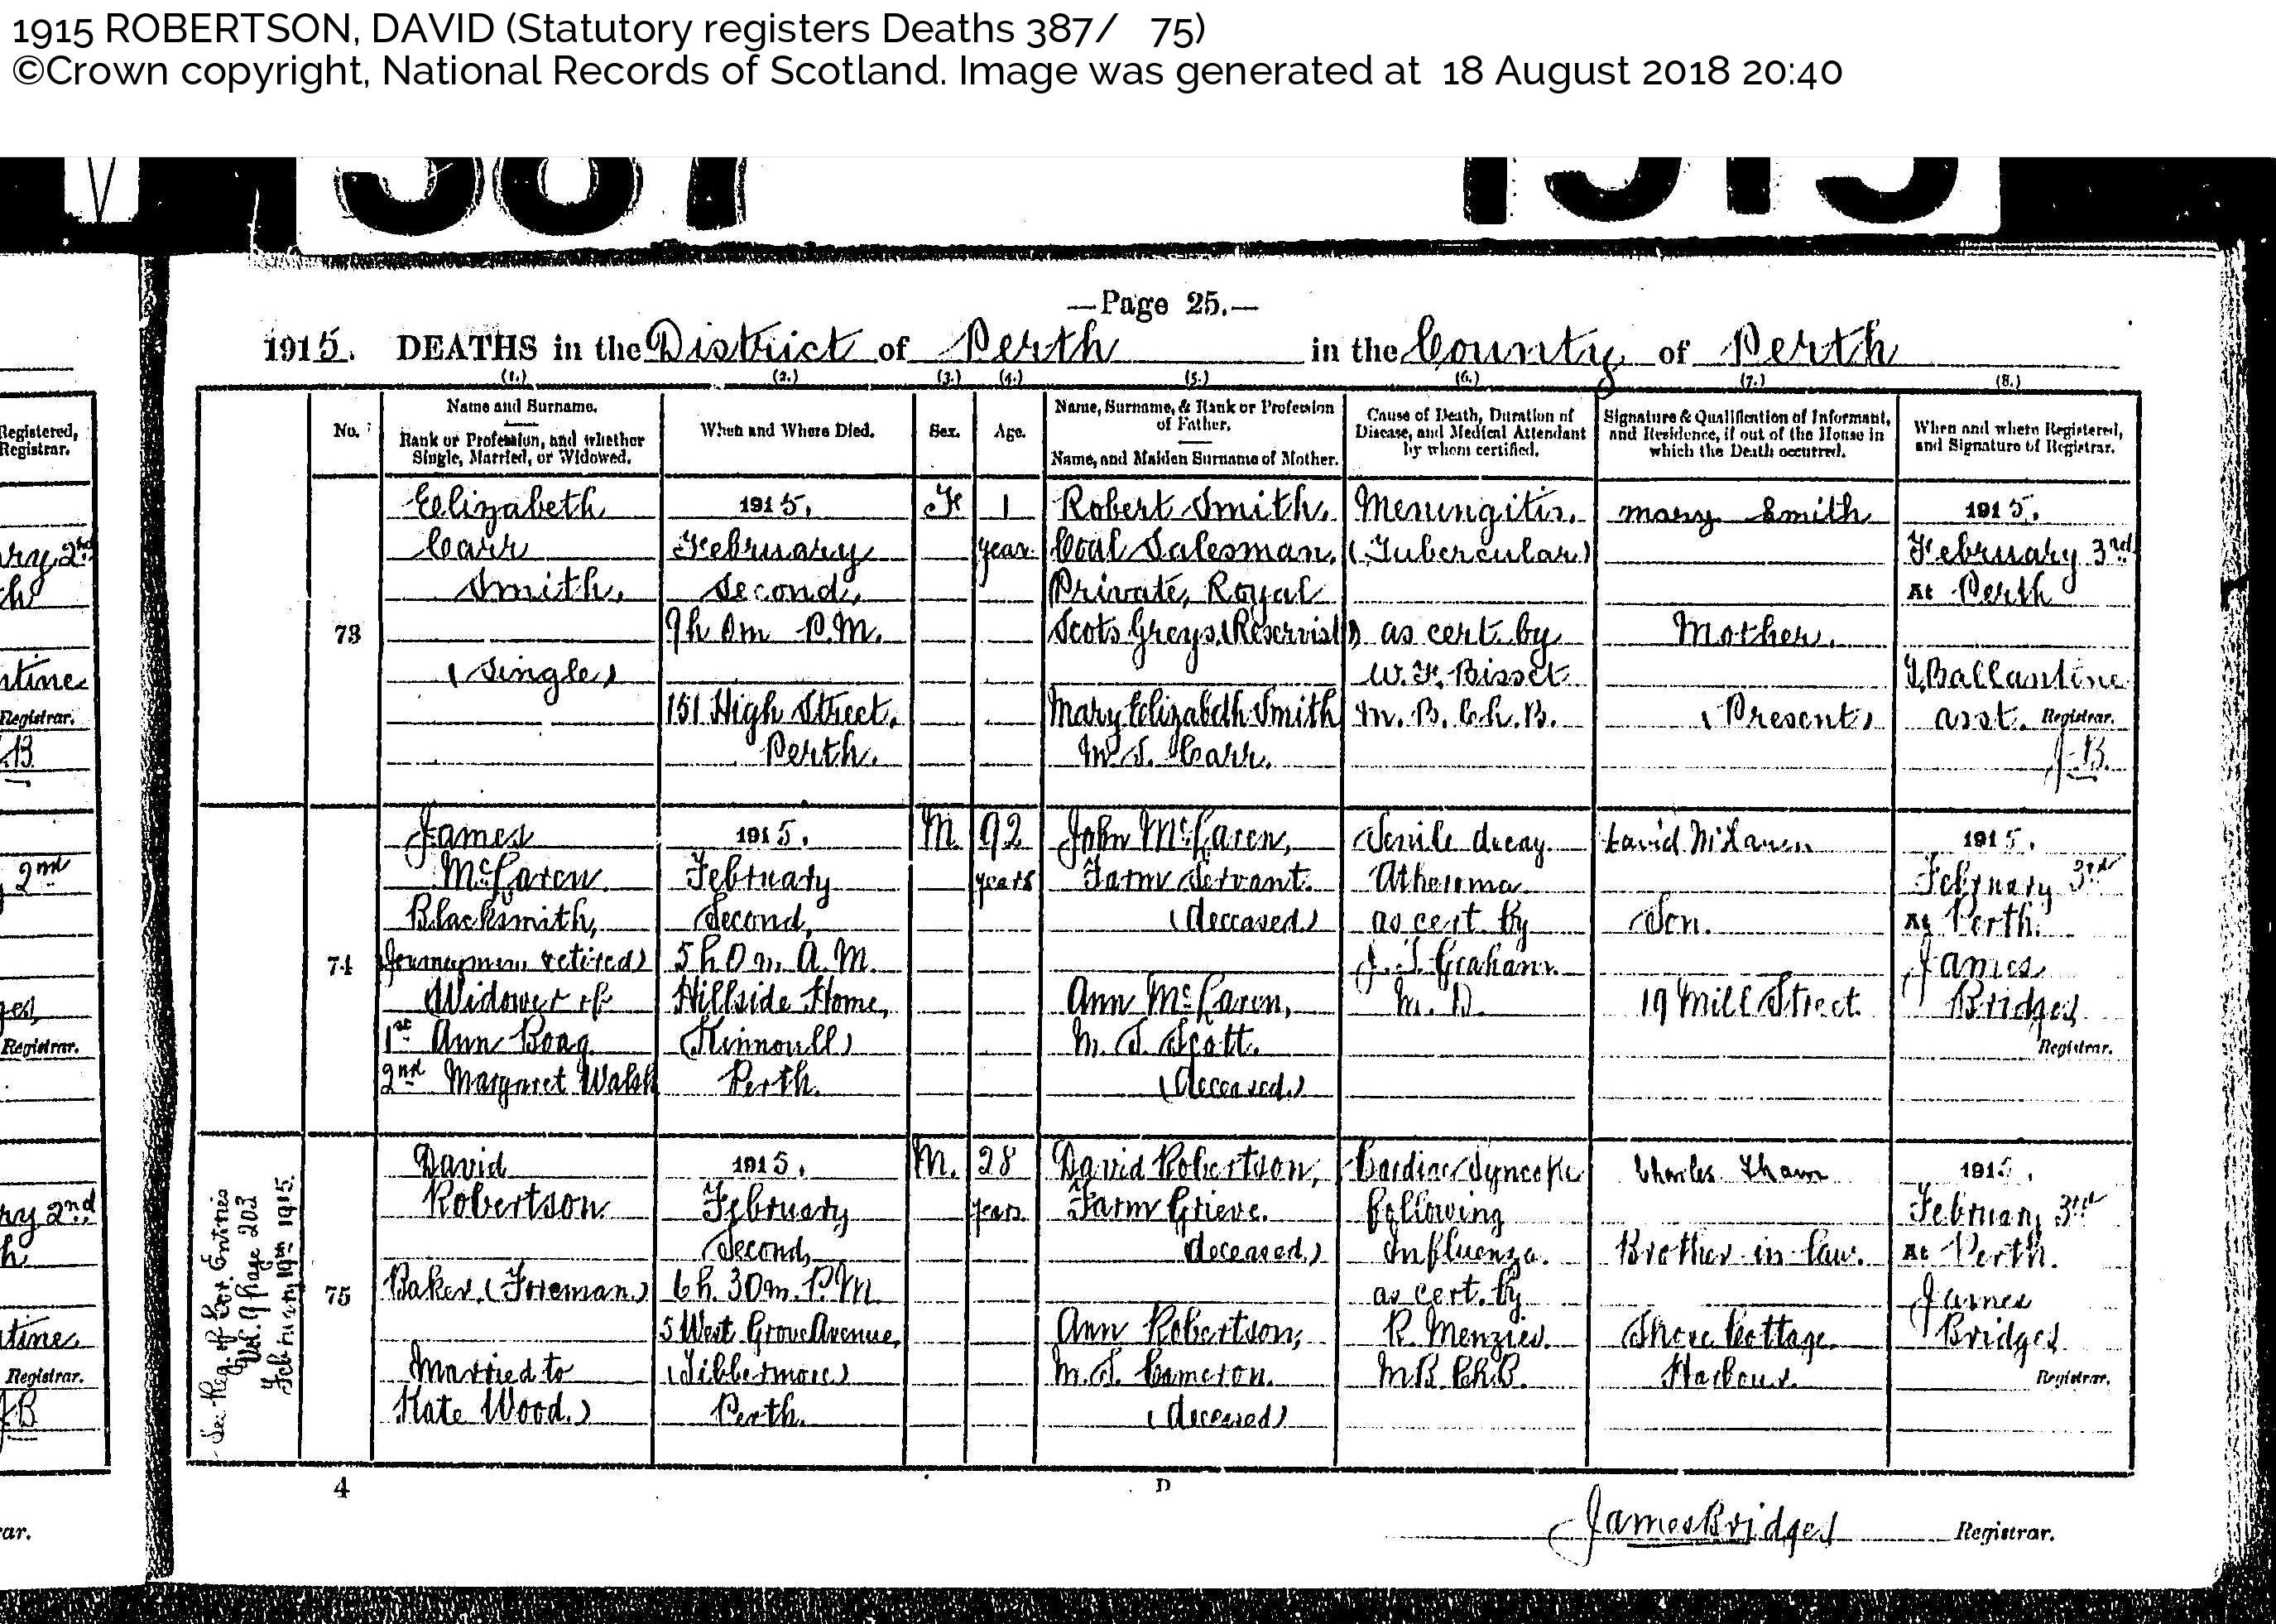 1915 ROBERTSON, DAVID (Statutory registers Deaths 387/ 75)
©Crown copyright, National Records of Scotland. Image was generated at 18 August 2018 20:40
387
1915
—Page 25.—
1915. DEATHS in the District of Perth in the County of Perth
(1.) (2.) (3.) (4.) (5.) (6.) (7.) (8.)
No.
Name and Surname.
Rank or Profession, and whether
Single, Married, or Widowed.
When and Where Died.
Sex.
Age.
Name, Surname, & Rank or Profession
of Father.
Name, and Maiden Surname of Mother.
Cause of Death, Duration of
Disease, and Medical Attendant
by whom certified.
Signature & Qualification of Informant,
and Residence, if out of the House in
which the Death occurred.
When and where Registered,
and Signature of Registrar.
73
Elizabeth
Carr
Smith.
(Single)
1915.
February
Second,
9h 0m P.M.
151 High Street,
Perth.
F
1
year.
Robert Smith.
Coal Salesman.
Private, Royal
Scots Greys (Reservist)
Mary Elizabeth Smith
M.S. Carr.
Meningitis.
(Tubercular)
as cert. by
W. F. Bisset
M.B. Ch.B.
Mary Smith
Mother.
(Present)
1915.
February 3rd
At Perth
Ballantine
asst. Registrar.
J.B.
74
James
McLaren
Blacksmith,
(Journeyman retired)
Widower of
1st Ann Boag
2nd Margaret Walsh
1915.
February
Second,
5h 0m A.M.
Hillside Home,
(Kinnoull)
Perth.
M.
92
years
John McLaren,
Farm Servant.
(deceased)
Ann McLaren,
M.S. Scott.
(deceased.)
Senile decay
Atheroma
as cert. by
J. T. Graham.
M.D.
David McLaren
Son.
19 Mill Street.
1915.
February 3rd
At Perth.
James
Bridges
Registrar.
See Reg. of Cor. Entries
Vol. 9 Page 203
February 19th 1915.
75
David
Robertson
Baker, (Foreman)
Married to
Kate Wood.)
1915.
February
Second,
6h. 30m. P.M.
5 West Grove Avenue,
(Tibbermore)
Perth.
M.
28
years
David Robertson,
Farm Grieve.
deceased.)
Ann Robertson,
M.S. Cameron.
(deceased)
Cardiac Syncope
following
Influenza.
as cert. by
R. Menzies.
M.B. Ch.B.
Charles
Brother-in-law.
Shore Cottage
Harbour.
1915.
February 3rd
At Perth.
James
Bridges
Registrar.
4
D
James Bridges Registrar.